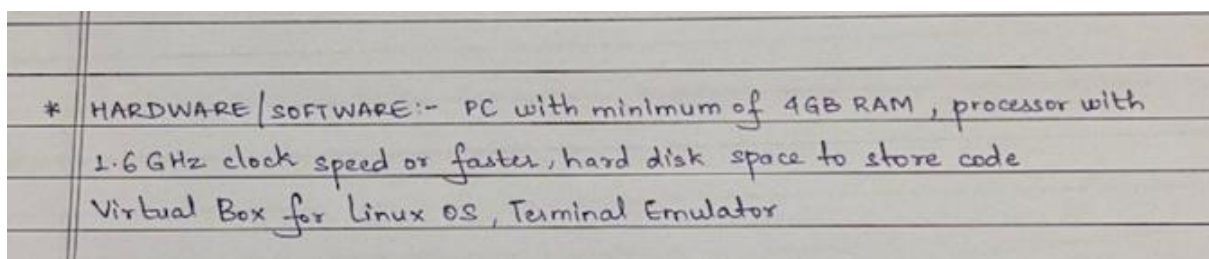 * HARDWARE/SOFTWARE:- PC with minimum of 4GB RAM, processor with
1.6 GHz clock speed or faster, hard disk space to store code
Virtual Box for Linux OS, Terminal Emulator